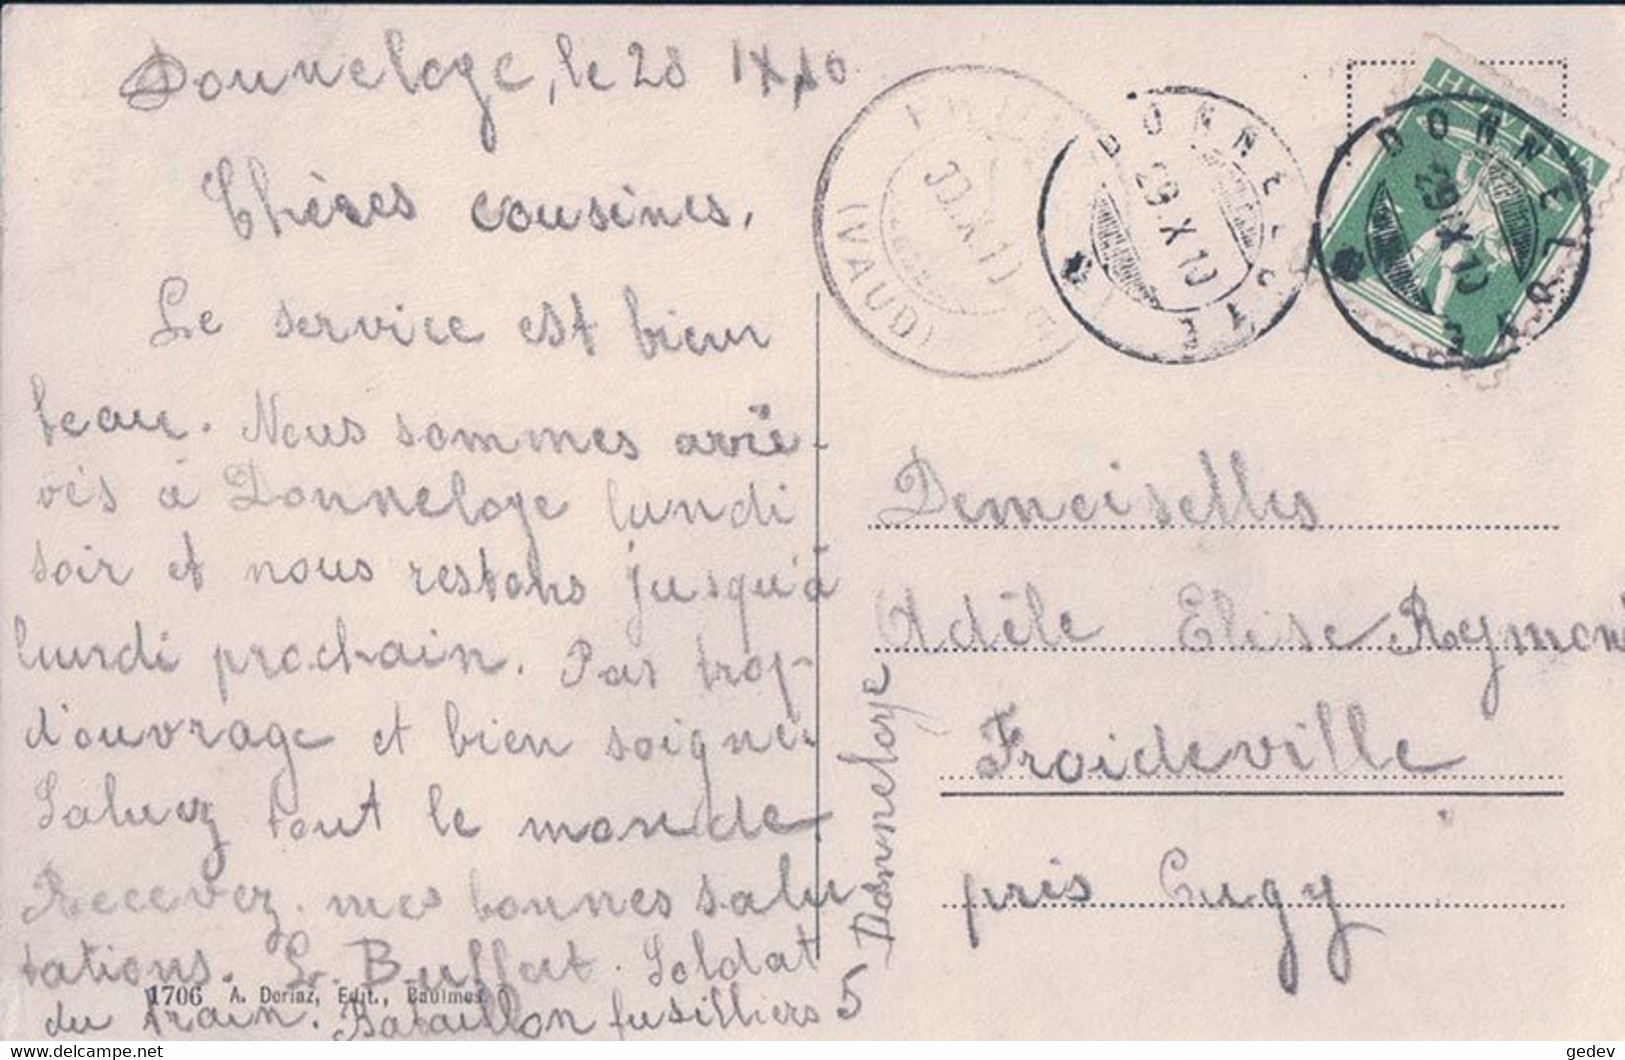 Donneloye, le 28 IX 10
Chères cousines,
Le service est bien
beau. Nous sommes arri-
vés à Donneloye lundi
soir et nous restons jusqu'à
lundi prochain. Pas trop
d'ouvrage et bien soigné.
Saluez tout le monde
Recevez mes bonnes salu
tations. L. Buffat. Soldat
du train. Bataillon fusilliers 5
Donneloye
1706 A. Deriaz, Edit., Baulmes
(VAUD)
30.X.10
DONNELOYE
29.X.10
HELVETIA
DONNELOYE
29.X.10
Demoiselles
Adèle Elise Reymond
Froideville
près Cugy
https://www.delcampe.net
gedev